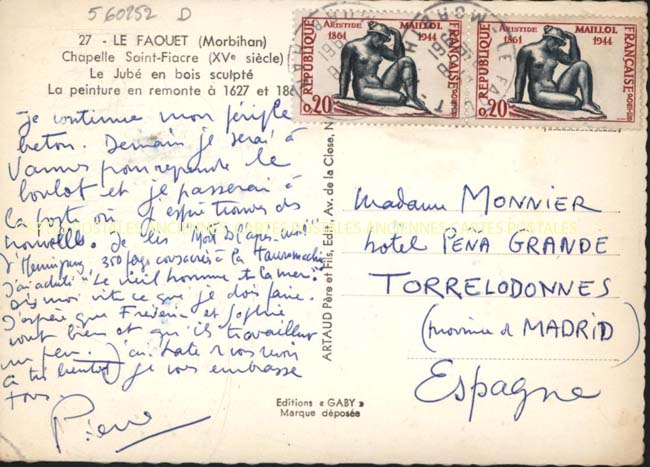 560252 D
27 - LE FAOUET (Morbihan)
Chapelle Saint-Fiacre (XVe siècle)
Le Jubé en bois sculpté
La peinture en remonte à 1627 et 186
RÉPUBLIQUE FRANÇAISE
ARISTIDE MAILLOL
1861 1944
0,20
POSTES
RÉPUBLIQUE FRANÇAISE
ARISTIDE MAILLOL
1861 1944
0,20
POSTES
Je continue mon périple
breton. Demain je serai à
Vannes pour reprendre le
boulot et je passerai à
la poste où j'espère trouver des
nouvelles. Je lis "Mort dans l'après-midi"
d'Hemingway 350 pages consacrées à la Tauromachie
J'ai acheté "Le vieil homme et la mer".
Dis moi vite ce que je dois faire.
J'espère que Frédéric et Sophie
vont bien et qu'ils travaillent
un peu. J'ai hâte de vous revoir
à très bientôt je vous embrasse
tous.
Pierre
ARTAUD Père et Fils, Edit., Av. de la Close, N
Editions « GABY »
Marque déposée
Madame MONNIER
hotel PENA GRANDE
TORRELODONNES
(province de MADRID)
Espagne
CARTES POSTALES ANCIENNES CARTES POSTALES